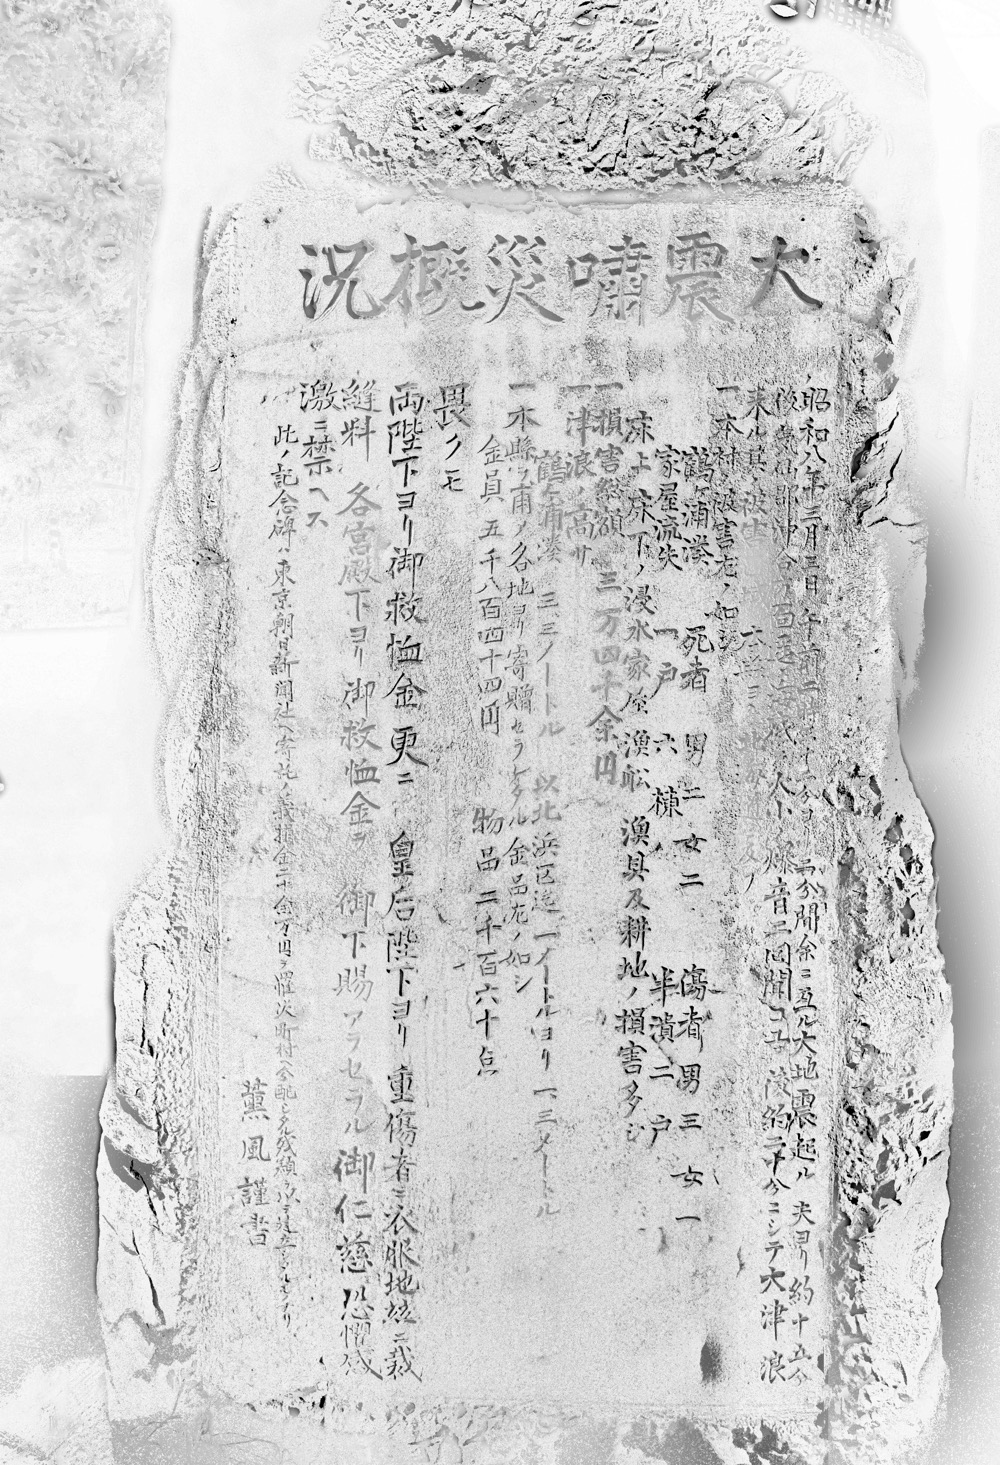 大震嘯災概況
昭和八年三月三日午前二時 分ヨリ 二分間余ニ亙ル大地震起ル 夫ヨリ約十五分
後 仙郡沖合 大小爆音二回聞コユ 後約二十分ニシテ大津浪
来ル其ノ被害
一本村ノ被害左ノ如シ
鶴ヶ浦湊 死者 男二女二 傷者男三女一
家屋流失 一戸六棟 半潰二戸
床上床下ノ浸水家屋漁船漁具及耕地ノ損害多シ
一損害総額 三万四千余円
一津浪ノ高サ
鶴ヶ浦湊 三三メートル 以北浜区迄一メートルヨリ一六三メートル
一本縣ヲ甫メ各地ヨリ寄贈セラレタル金品左ノ如シ
金員 五千八百四十四円 物品二千百六十点
畏クモ
両陛下ヨリ御救恤金更ニ 皇后陛下ヨリ重傷者ニ衣服地並ニ裁
縫料 各宮殿下ヨリ御救恤金ヲ 御下賜アラセラル御仁慈恐懼感
激ニ禁ヘス
此ノ記念碑ハ東京朝日新聞社ヘ寄託ノ義捐金二十余万円ヲ罹災町村ヘ分配シ其残額 ヲ以テ建立シタルモノナリ
薫風謹書